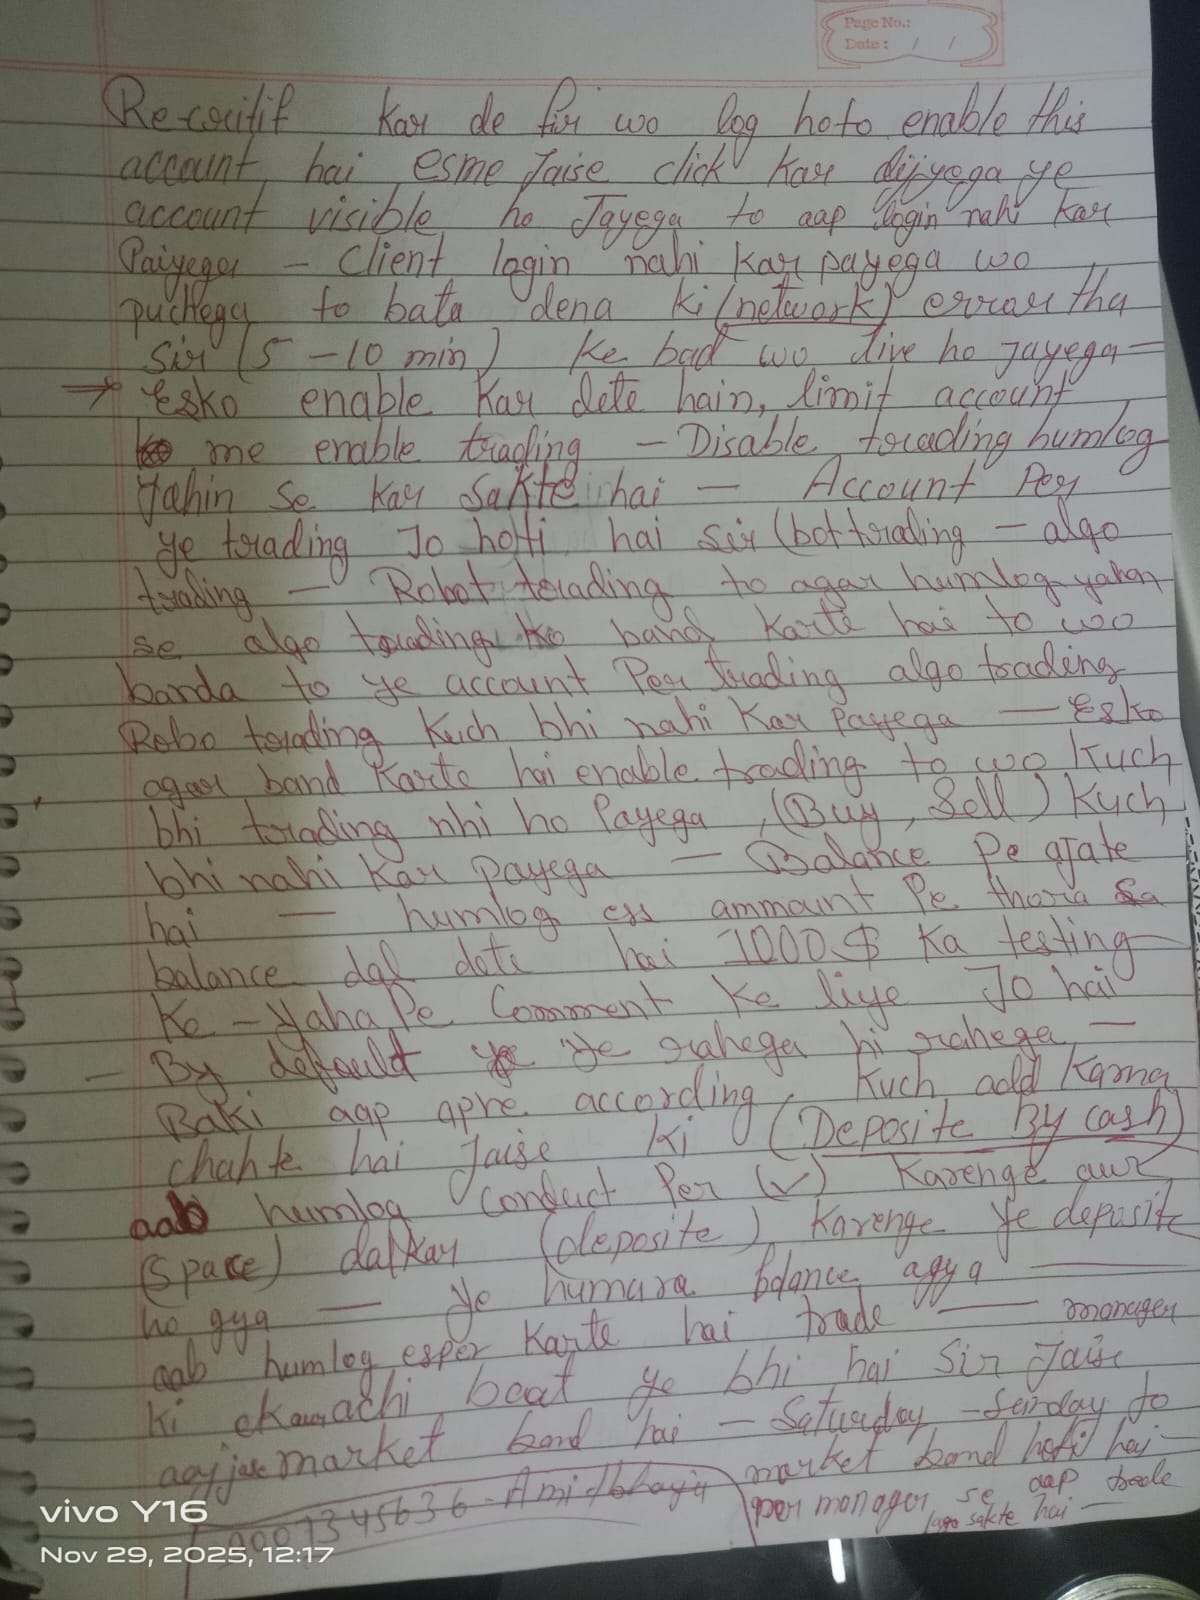 Page No.:
Date : / /
Re-coutif Kar de fir wo log hoto enable this
account hai esme Jaise click kar dijiyega ye
account visible ho Jayega to aap login nahi kar
Paiyega - Client login nahi kar payega wo
puchega to bata dena ki (network) errour tha
Sir (5 - 10 min) Ke bad wo live ho jayega -
→ Esko enable Kar dete hain, limit account
me enable trading - Disable trading humlog
Yahin se kar sakte hai - Account Per
ye trading Jo hoti hai sir (bot trading - algo
trading - Robot trading to agar humlog yahan
se algo trading ko band karte hai to wo
banda to ye account Per trading algo trading
Robo trading Kuch bhi nahi Kar Payega - Esko
agar band Karte hai enable trading to wo Kuch
bhi trading nhi ho Payega, (Buy, Sell) Kuch
bhi nahi Kar payega - Balance Pe ajate
hai - humlog ess ammaunt Pe thora sa
balance dal dete hai 1000 $ Ka testing
Ke - Yaha Pe Comment Ke liye Jo hai
- By default ye rahega hi rahega -
Baki aap apne according Kuch add Karna
chahte hai Jaise Ki (Deposite By cash)
aab humlog Conduct Per (✓) Karenge aur
(Space) dalkar (deposite) Karenge Ye deposite
ho gya - Ye humara balance agya -
aab humlog esper Karte hai trade - manager
ki ek achi baat ye bhi hai Sir Jaise
market band hai - Saturday - Sunday to
market band hoti hai -
per manager se aap trade
laga sakte hai -
vivo Y16
Nov 29, 2025, 12:17